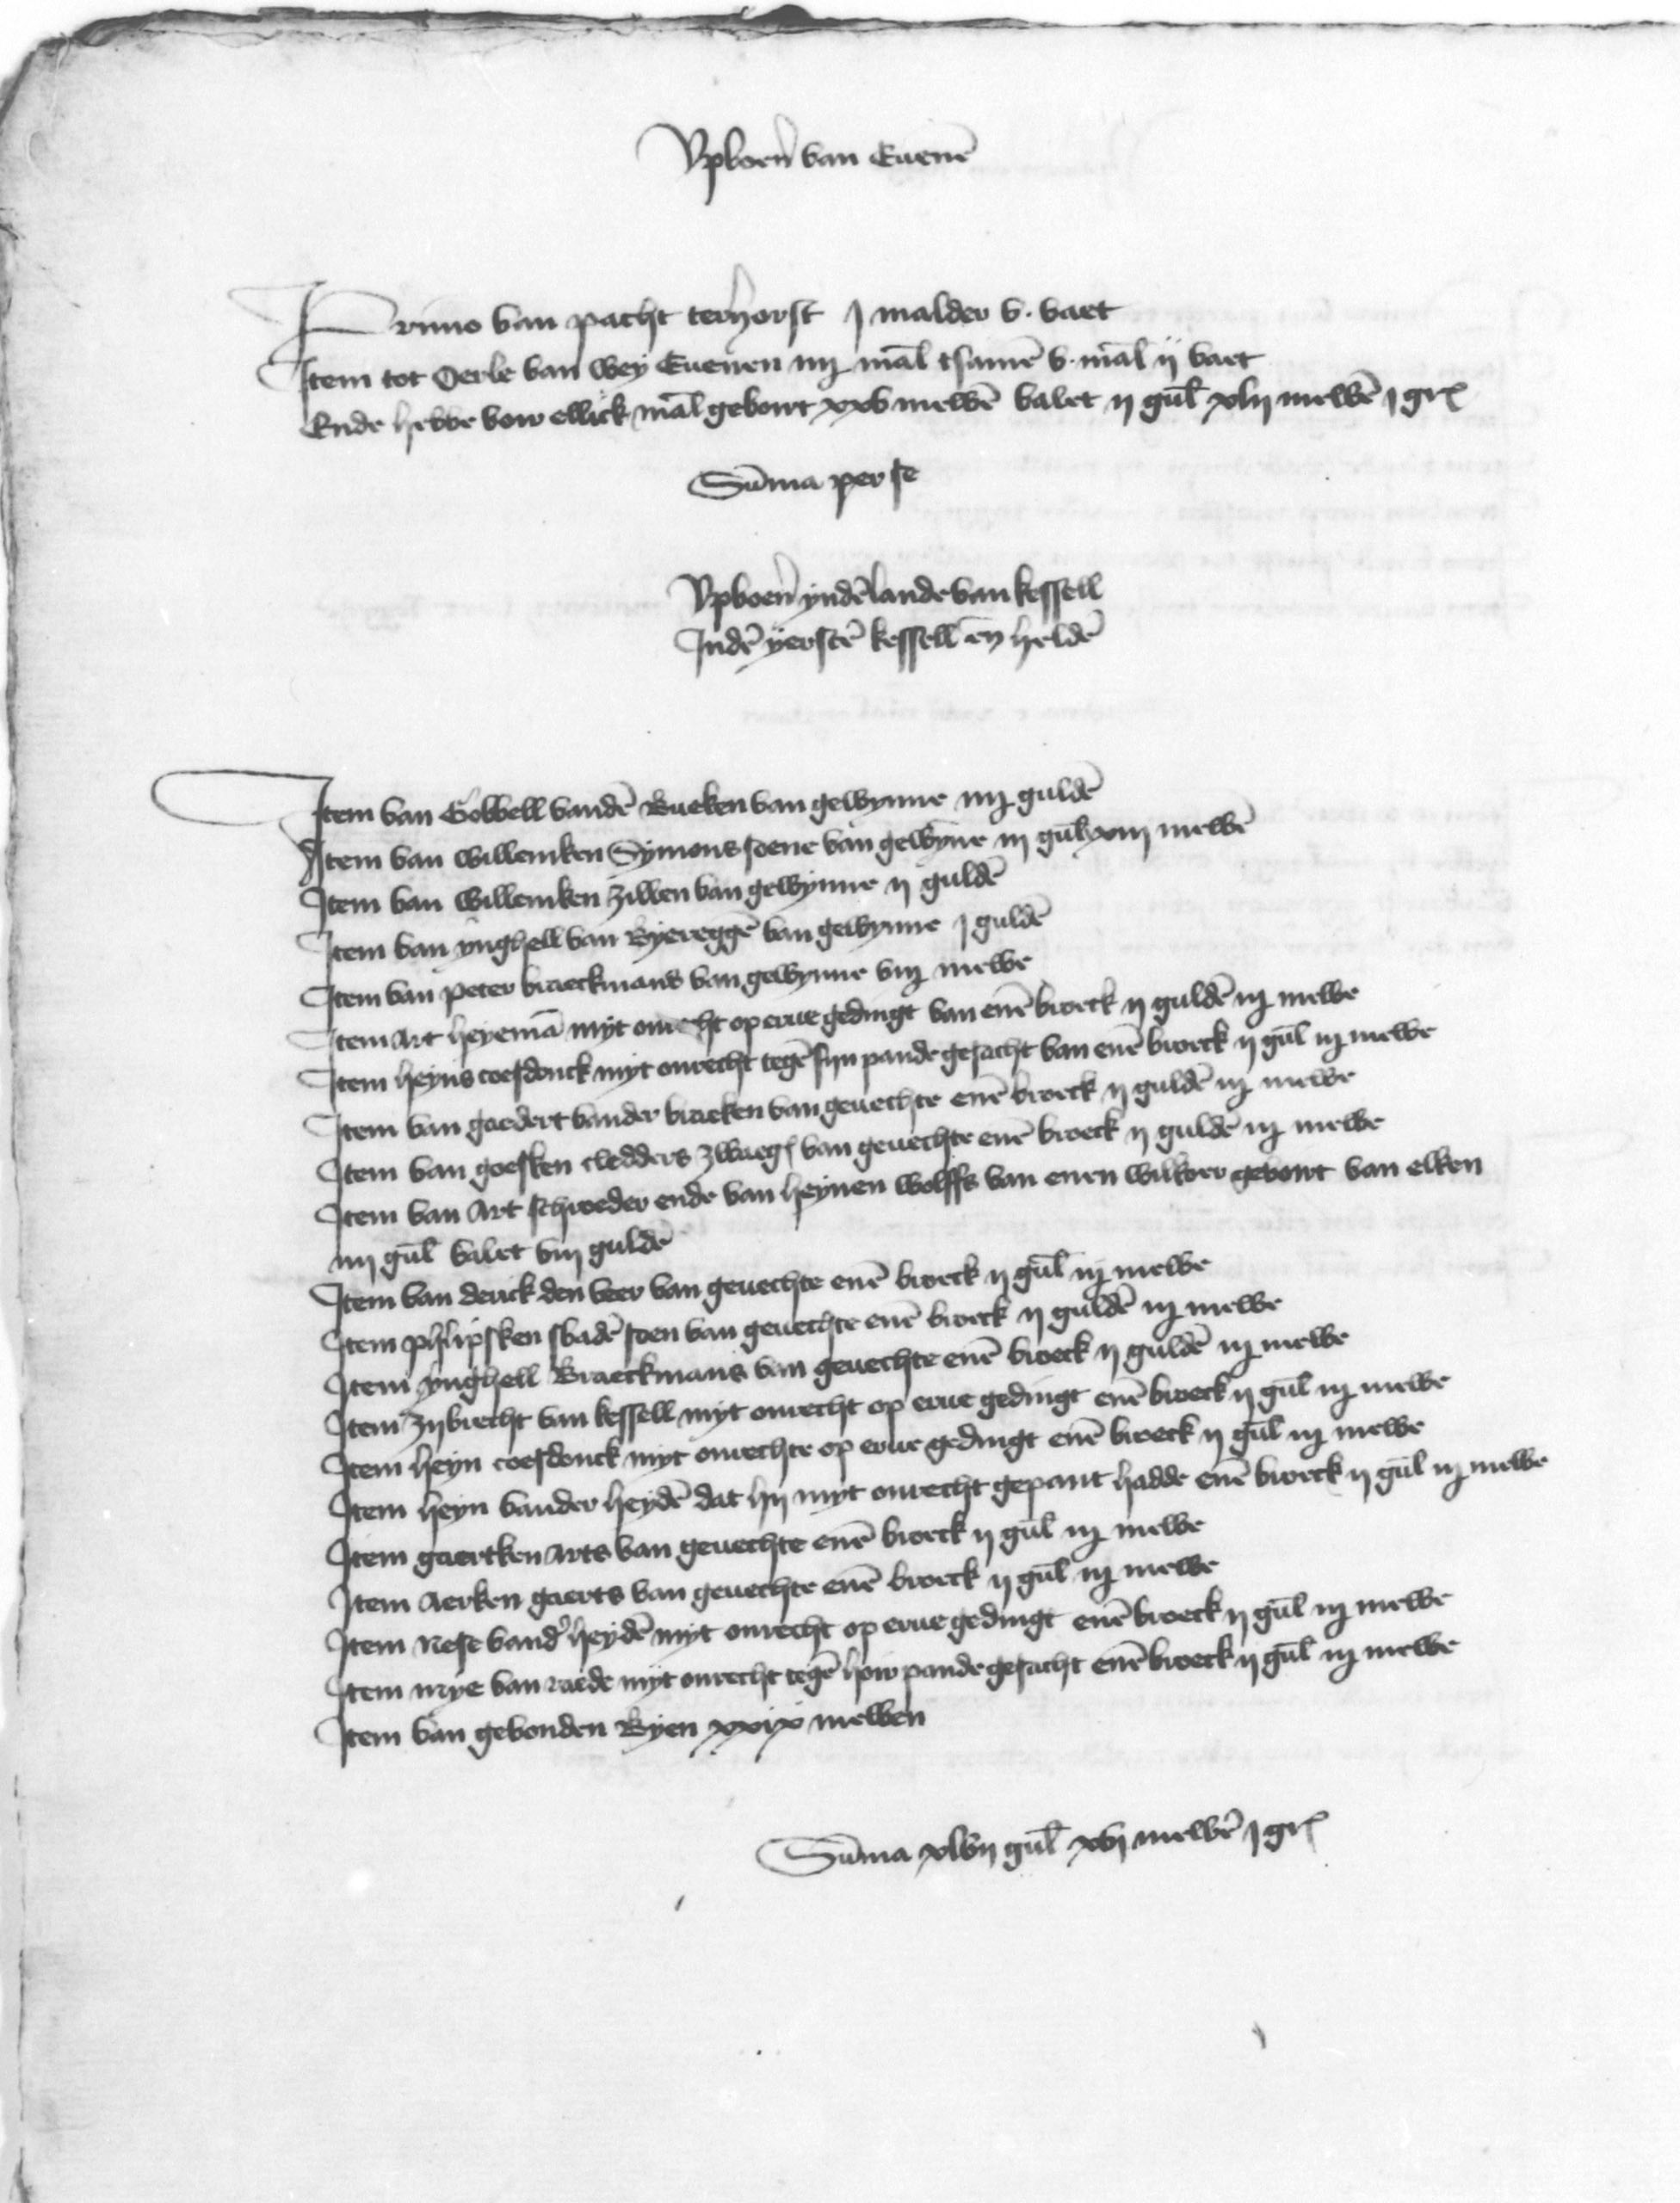 Vpboerῆ van Euenē
Primo van pacht terhorst j malder v. vaet
Item tot Oerle van wey Euenen iiij māl tsamē v. māl ij vaet
Ende hebbe vow ellick māl gebowt xxv mewē valet ij gūl xlij mewē j gr
Sūma per se
Vpboerῆ yndē lande van kessell
Indē yerstē kessell eñ heldē
Item van Gobbell vandē Bueken van gewynne iiij guldē
Item van willemken Symons soene van gewȳne iij gūl xiij mewē
Item van willemken zillen van gewynne ij guldē
Item van ynghell van Byereggē van gewynne j guldē
Item van peter braeckmans van gewynne viij mewe
Item Art heyemā myt onrecht op erue gedingt van enē broeck ij guldē iij mewe
Item heyns coesdonck myt onrecht tegē syn pande gesacht van enē broeck ij gūl iij mewe
Item van goedert vander braeken van geuechte enē broeck ij guldē iij mewe
Item van goesken cledders zwaeg van geuechte enē broeck ij guldē iij mewe
Item van Art schroeder ende van heynen wolffs van enen wilkoer gebowt van elken
iiij gūl valet viij guldē
Item van derick den veer van geuechte enē broeck ij gūl iij mewe
Item philipsken sbadē soen van geuechte enē broeck ij guldē iij mewe
Item ynghell Braeckmans van geuechte enē broeck ij guldē iij mewe
Item zijbrecht van kessell myt onrecht op erue gedingt enē broeck ij gūl iij mewe
Item heyn coesdonck myt onrechte op erue gedingt enē broeck ij gūl iij mewe
Item heyn vander heydē dat hij myt onrecht gepant hadde enē broeck ij gūl iij mewe
Item gaertken Arts van geuechte enē broeck ij gūl iij mewe
Item Aerken gaerts van geuechte enē broeck ij gūl iij mewe
Item Nese vand' heydē myt onrecht op erue gedingt enē broeck ij gūl iij mewe
Item mye van raede myt onrecht tegē how pande gesacht enē broeck ij gūl iij mewe
Item van gevonden Byen xxix mewen
Sūma xlvij gūl xvj mewē j gr